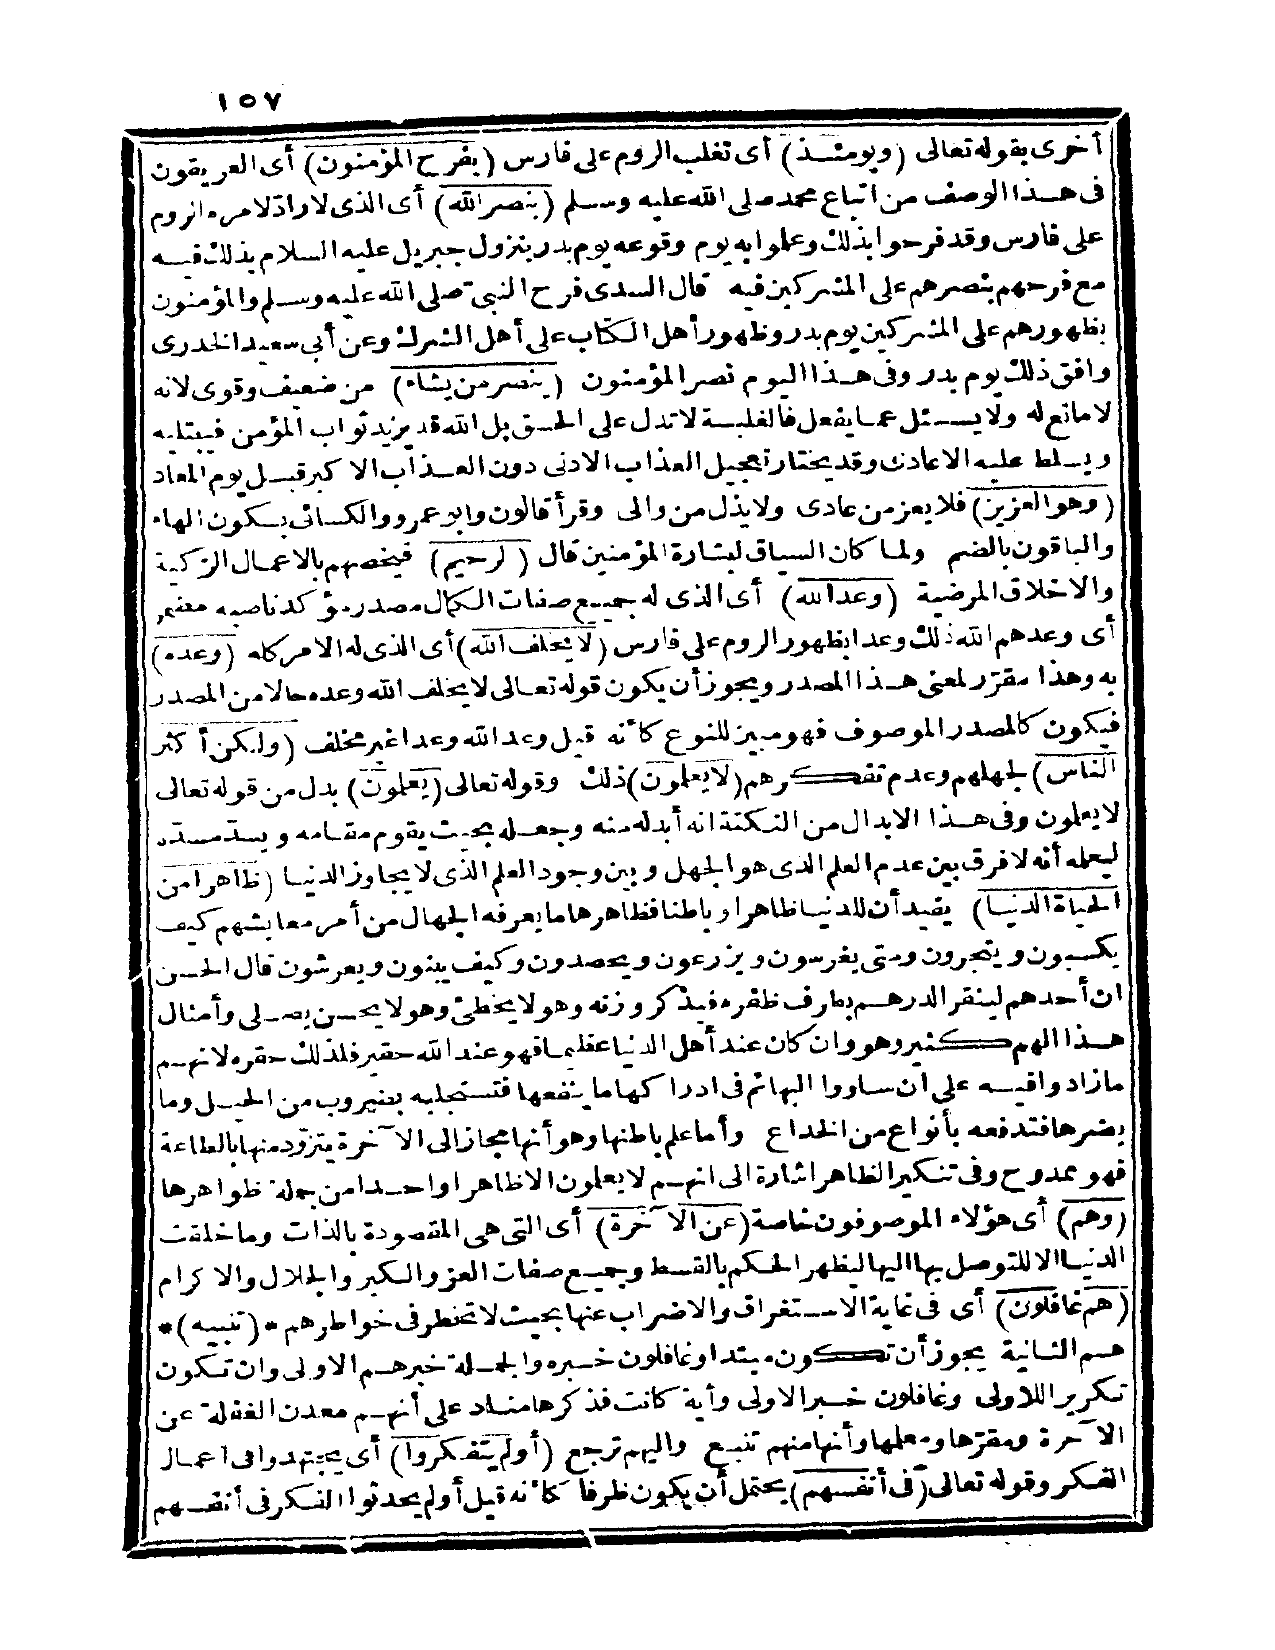 ١٥٧
أخرى بقوله تعالى (ويومئذ) أى تغلب الروم على فارس (يفرح المؤمنون) أى العريقون
فى هذا الوصف من اتباع محمد صلى الله عليه وسلم (بنصر الله) أى الذى لا راد لامره الروم
على فارس وقد فرحوا بذلك وعملوا به يوم وقوعه يوم بدر بنزول جبريل عليه السلام بذلك فيه
مع فرحهم بنصرهم على المشركين فيه قال السدى فرح النبى صلى الله عليه وسلم والمؤمنون
بظهورهم على المشركين يوم بدر وظهور أهل الكتاب على أهل الشرك وعن أبى سعيد الخدرى
وافق ذلك يوم بدر وفى هذا اليوم نصر المؤمنون (ينصر من يشاء) من ضعيف وقوى لانه
لا مانع له ولا يسئل عما يفعل فالغلبة لا تدل على الحق بل الله قد يزيد ثواب المؤمن فيبتليه
ويسلط عليه الاعادى وقد يختار تعجيل العذاب الادنى دون العذاب الاكبر قبل يوم المعاد
(وهو العزيز) فلا يعز من عادى ولا يذل من والى وقرأ قالون وابو عمرو والكسائى بسكون الهاء
والباقون بالضم ولما كان السياق لبشارة المؤمنين قال (لرحيم) فيخصهم بالاعمال الزكية
والاخلاق المرضية (وعد الله) أى الذى له جميع صفات الكمال مصدر مؤكد ناصبه مضمر
أى وعدهم الله ذلك وعدا بظهور الروم على فارس (لا يخلف الله) أى الذى له الامر كله (وعده)
به وهذا مقرّر لمعنى هذا المصدر ويجوز أن يكون قوله تعالى لا يخلف الله وعده حالا من المصدر
فيكون كالمصدر الموصوف فهو مبين للنوع كأنه قيل وعد الله وعدا غير مخلف (ولكن أكثر
الناس) لجهلهم وعدم تفكرهم (لا يعلمون) ذلك وقوله تعالى (يعلمون) بدل من قوله تعالى
لا يعلمون وفى هذا الابدال من النكتة انه أبدله منه وجعله بحيث يقوم مقامه ويسدّ مسدّه
ليعلمه أنه لا فرق بين عدم العلم الذى هو الجهل وبين وجود العلم الذى لا يجاوز الدنيا (ظاهرا من
الحياة الدنيا) يفيد أن للدنيا ظاهرا وباطنا فظاهرها ما يعرفه الجهال من أمر معايشهم كيف
يكسبون ويتجرون ومتى يغرسون ويزرعون ويحصدون وكيف يبنون ويعرشون قال الحسن
ان أحدهم لينقر الدرهم بطرف ظفره فيذكر وزنه وهو لا يخطئ وهو لا يحسن يصلى وأمثال
هذا لهم كثير وهو وان كان عند أهل الدنيا عظيما فهو عند الله حقير فلذلك حقره لانهم
ما زادوا فيه على ان ساووا البهائم فى ادراكها ما ينفعها فتستجلبه بضروب من الحيل وما
يضرها فتدفعه بأنواع من الخداع وأما علم باطنها وهو أنها مجاز الى الآخرة يتزوّد منها بالطاعة
فهو ممدوح وفى تنكير الظاهر اشارة الى انهم لا يعلمون الا ظاهرا واحدا من جملة ظواهرها
(وهم) أى هؤلاء الموصوفون خاصة (عن الآخرة) أى التى هى المقصودة بالذات وما خلقت
الدنيا الا للتوصل بها اليها ليظهر الحكم بالقسط وجميع صفات العز والكبر والجلال والاكرام
(هم غافلون) أى فى غاية الاستغراق والاضراب عنها بحيث لا تخطر فى خواطرهم *(تنبيه)*
هم الثانية يجوز أن تكون مبتدا وغافلون خبره والجملة خبر هم الاولى وان تكون
تكريرا للاولى وغافلون خبر الاولى وأية كانت فذكرها مناد على أنهم معدن الغفلة عن
الآخرة ومقرّها ومعلمها وأنها منهم تنبع واليهم ترجع (أولم يتفكروا) أى يجتهدوا فى اعمال
الفكر وقوله تعالى (فى أنفسهم) يحتمل أن يكون ظرفا كأنه قيل أولم يحدثوا الفكر فى أنفسهم